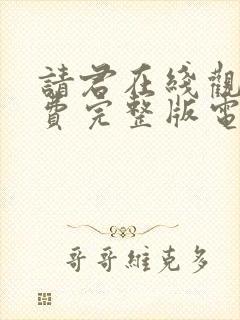 請君在綫觀
費完整版電
哥哥維克多